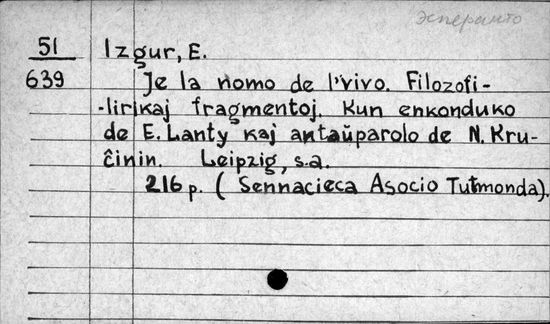 эсперанто
51 Izgur, E.
639 Je la nomo de l'vivo. Filozofi-
-lirikaj fragmentoj. Kun enkonduko
de E. Lanty kaj antaŭparolo de N. Kru-
ĉinin. Leipzig, s.a.
216 p. (Sennacieca Asocio Tutmonda).